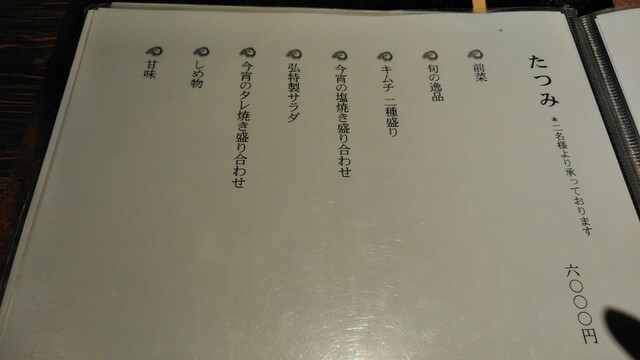 たつみ
＊二名様より承っております
六〇〇〇円
前菜
旬の逸品
キムチ 二種盛り
今宵の塩焼き盛り合わせ
弘特製サラダ
今宵のタレ焼き盛り合わせ
しめ物
甘味